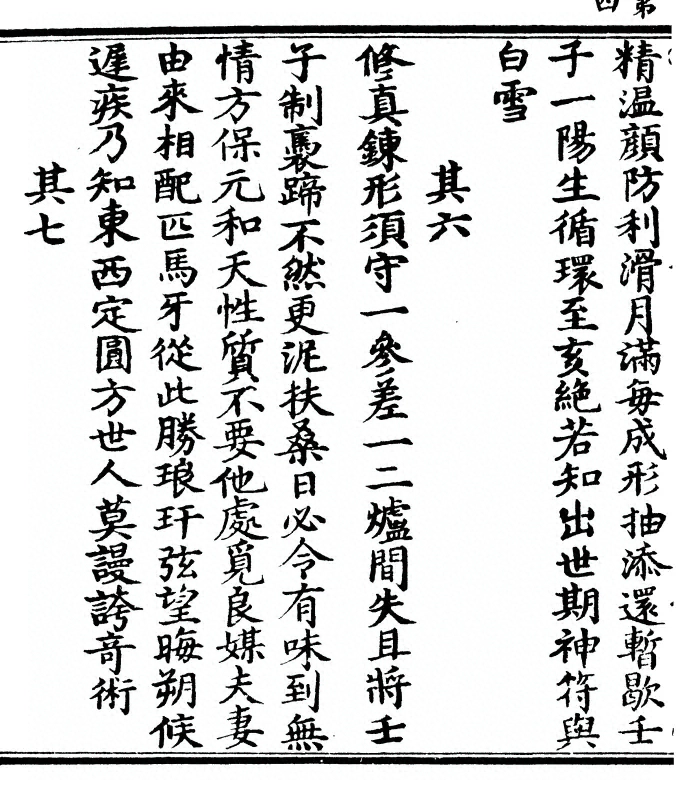 精温顔防利滑月滿每成形抽添還暫歇壬
子一陽生循環至亥絶若知出世期神符與
白雪
其六
修真鍊形須守一參差一二爐間失且將壬
子制裹蹄不然更泥扶桑日必令有味到無
情方保元和天性質不要他處覓良媒夫妻
由來相配匹馬牙從此勝琅玕弦望晦朔候
遲疾乃知東西定圓方世人莫謾誇奇術
其七